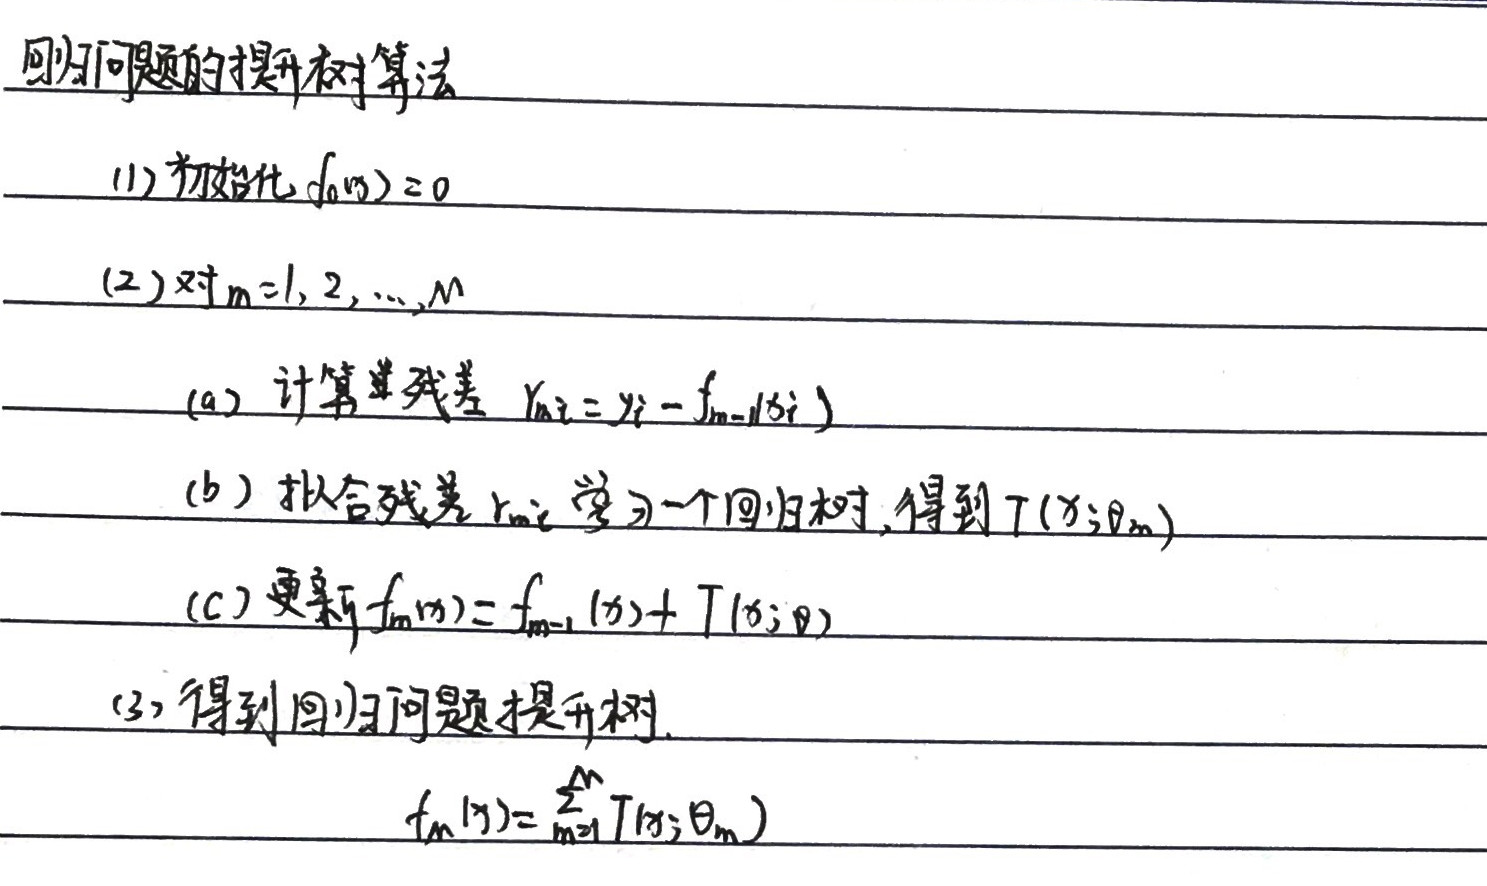 回归问题的提升树算法
(1) 初始化 f₀(x) = 0
(2) 对 m = 1, 2, ..., M
(a) 计算残差 rₘᵢ = yᵢ - fₘ₋₁(xᵢ)
(b) 拟合残差 rₘᵢ 学习一个回归树, 得到 T(x; θₘ)
(c) 更新 fₘ(x) = fₘ₋₁(x) + T(x; θ)
(3) 得到回归问题提升树.
f_M(x) = ∑_{m=1}^{M} T(x; θₘ)